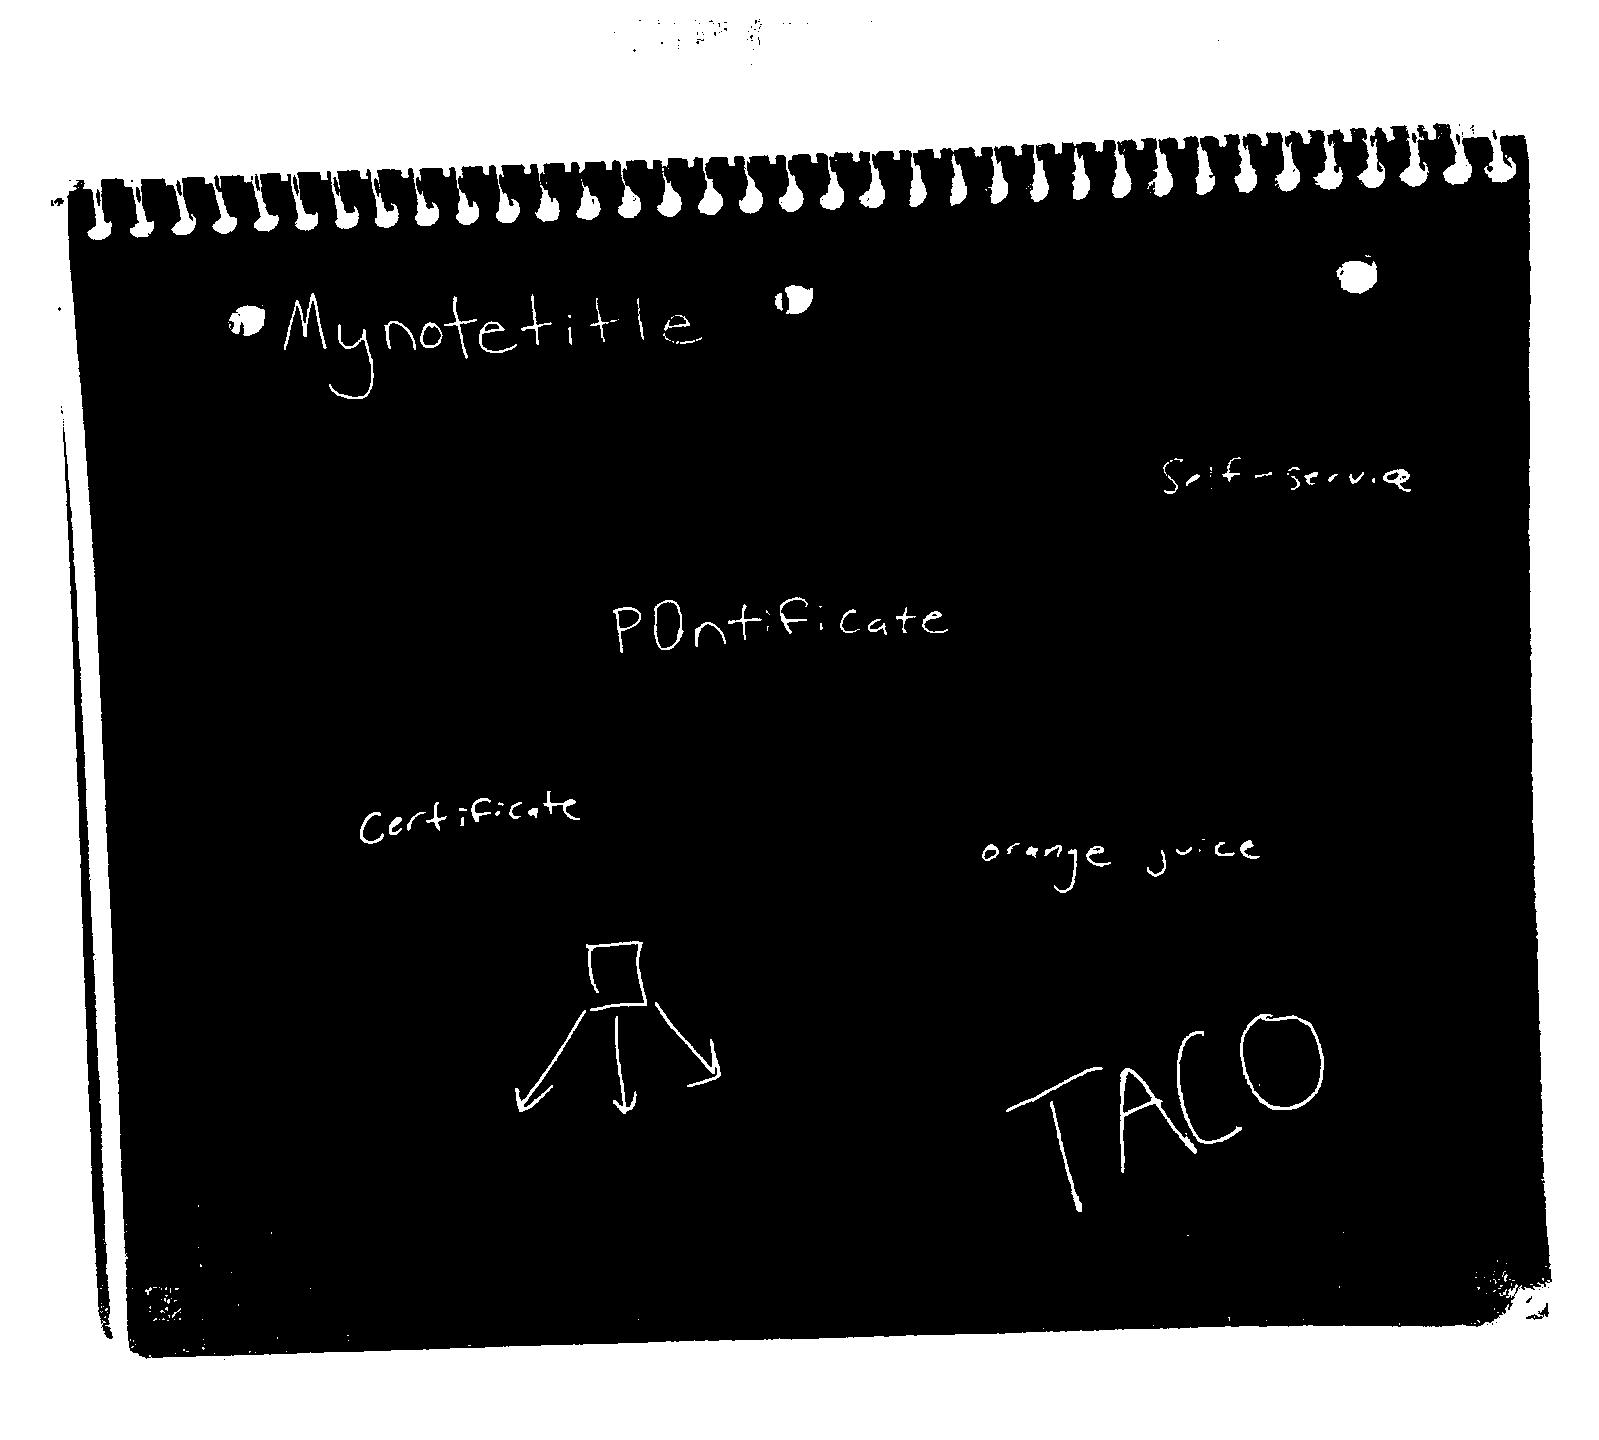 Mynotetitle
Self-service
POntificate
Certificate
orange juice
TACO